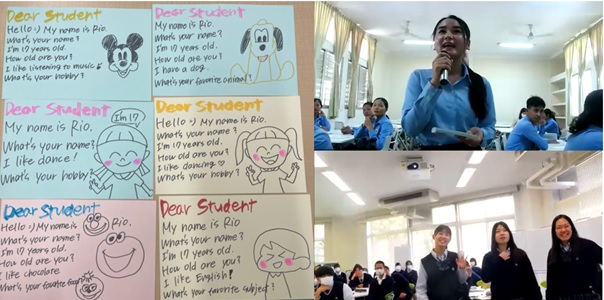 Dear Student
Hello :) My name is Rio.
What's your name?
I'm 17 years old.
How old are you?
I like listening to music
What's your hobby?
Dear Student
My name is Rio.
What's your name?
I'm 17 years old.
How old are you?
I have a dog.
What's your favorite animal?
Dear Student
My name is Rio.
What's your name?
I like dance!
What's your hobby?
I'm 17
Dear Student
Hello :) My name is Rio.
What's your name?
I'm 17 years old.
How old are you?
I like dancing
What's your hobby?
Dear Student
Hello :) My name is Rio.
What's your name?
I'm 17 years old.
How old are you?
I like chocolate
What's your favorite
Dear Student
My name is Rio
What's your name?
I'm 17 years old.
How old are you?
I like English!
What's your favorite subject?